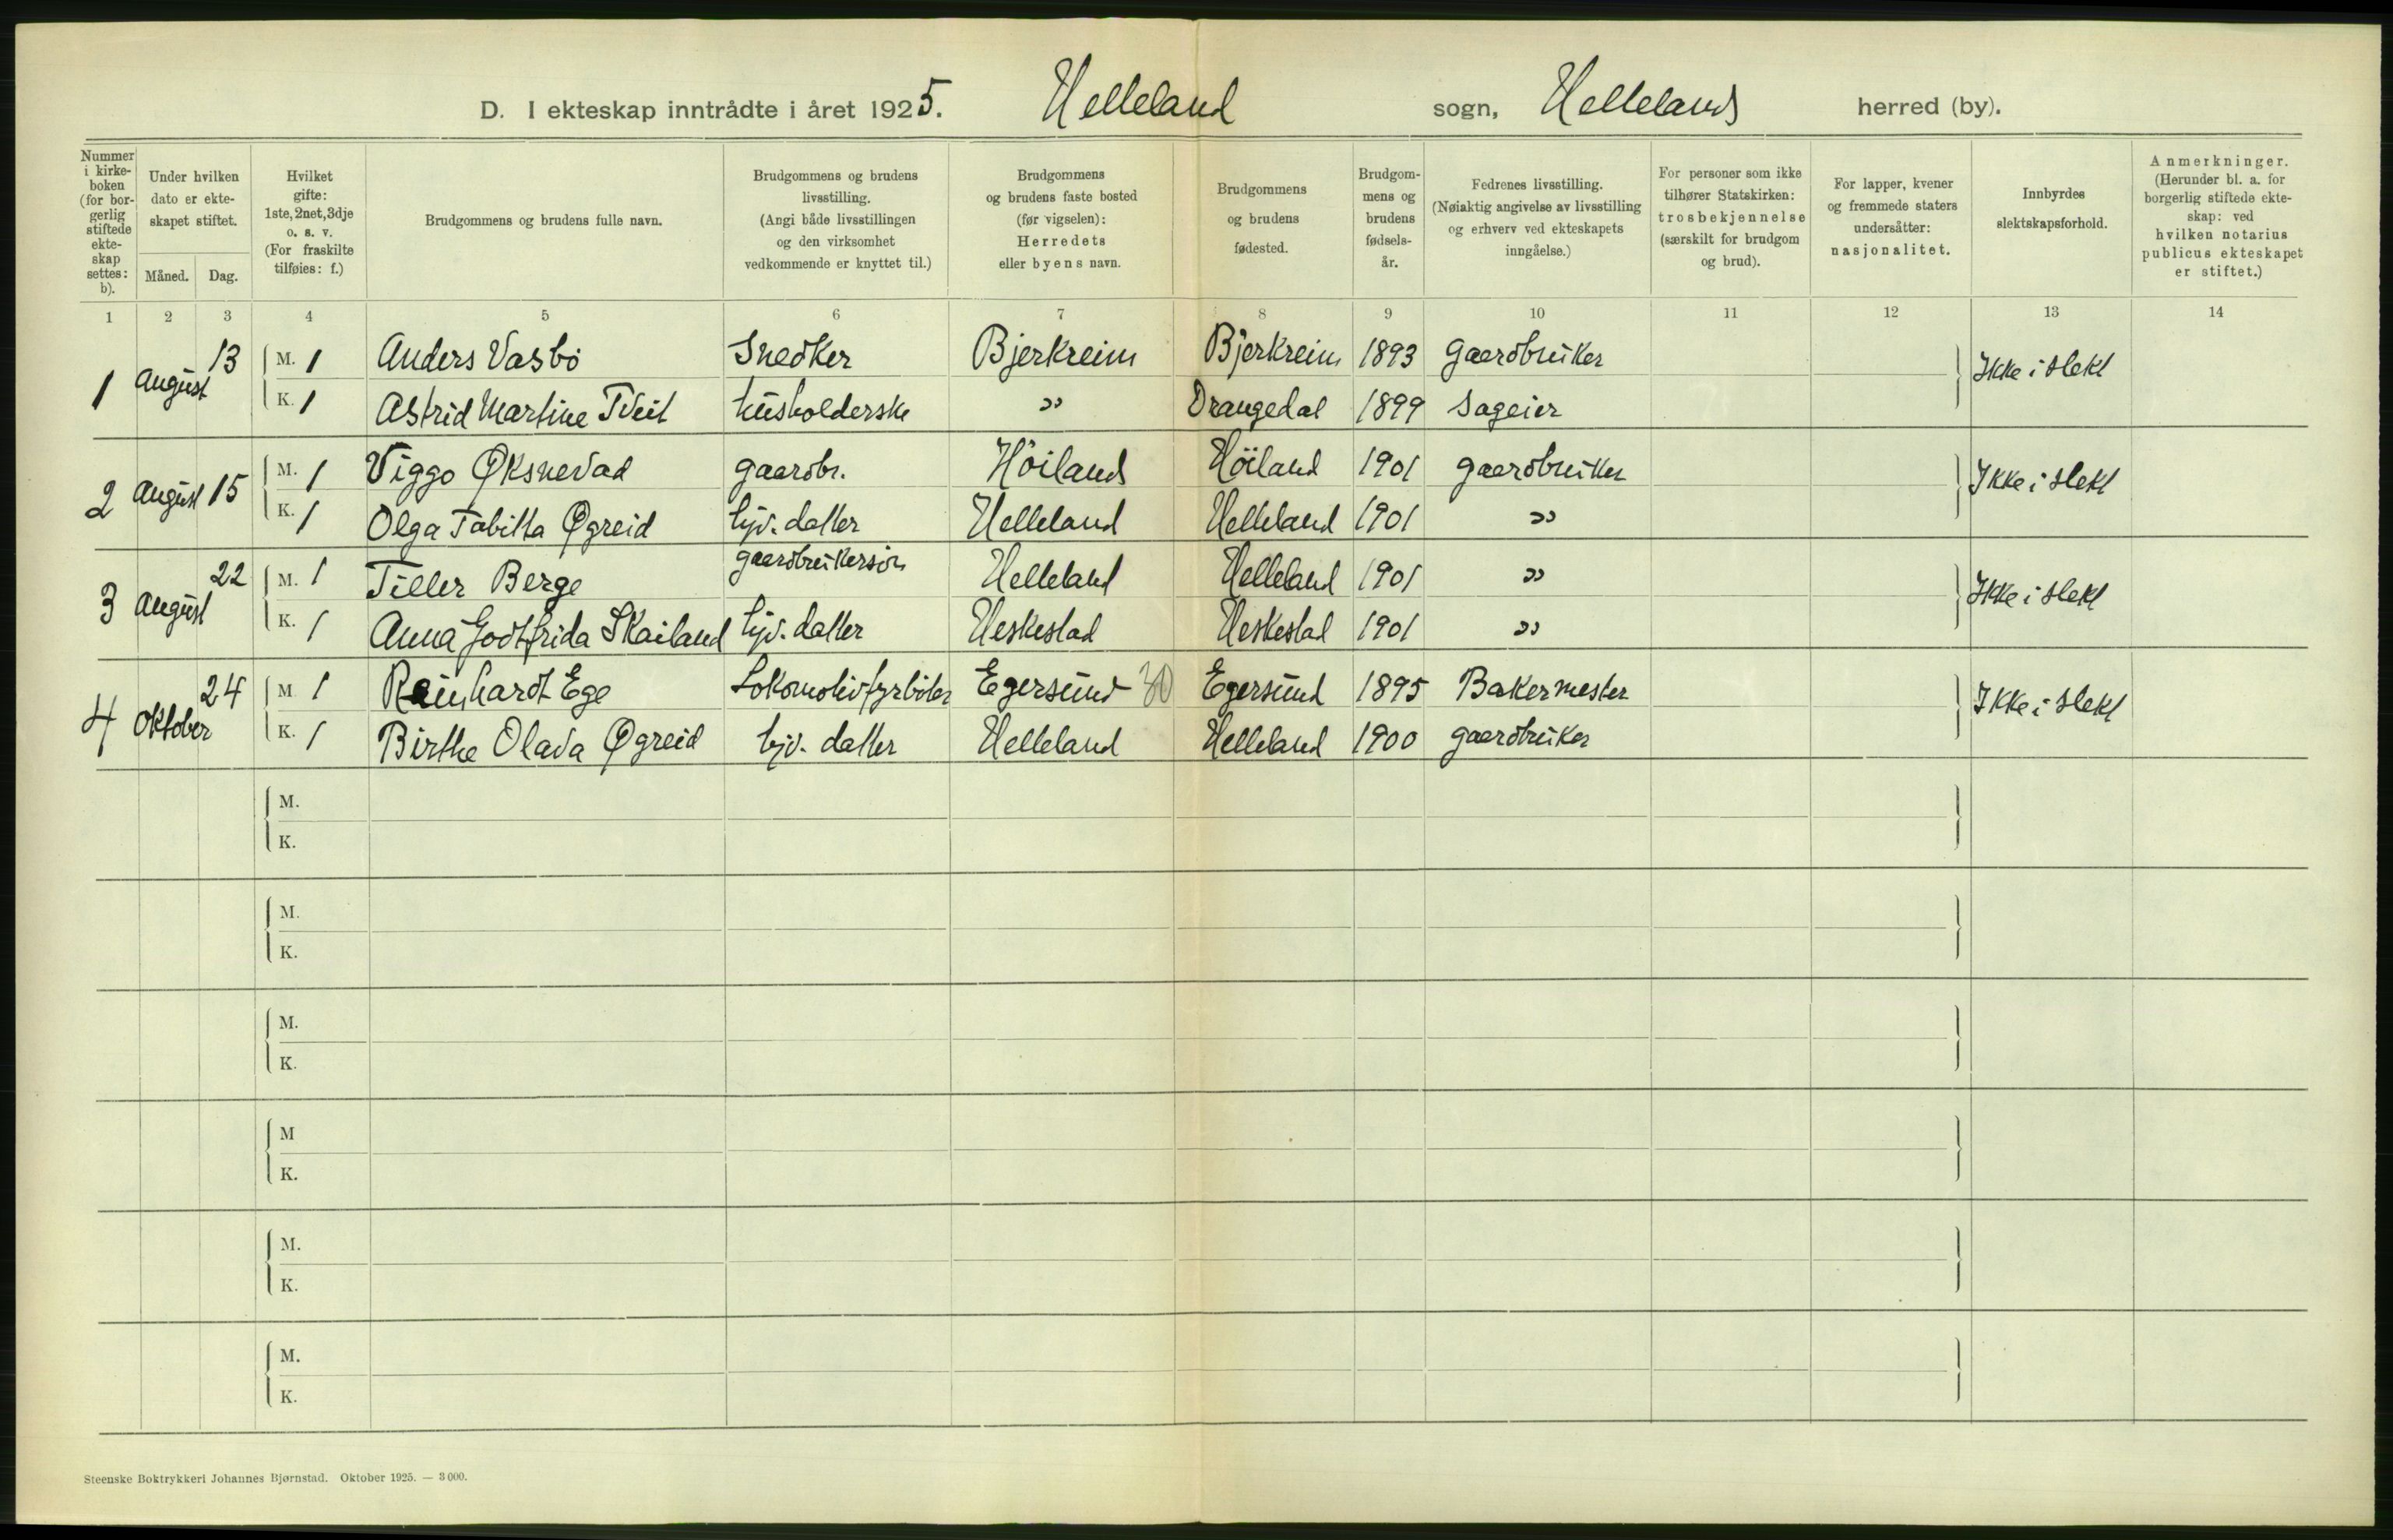 D. I ekteskap inntrådte i året 1925. Helleland sogn, Hellelands herred (by).
Nummer i kirke- boken (for bor- gerlig stiftede ekte- skap settes: b).
Under hvilken dato er ekte- skapet stiftet.
Måned. Dag.
Hvilket gifte: 1ste, 2net, 3dje o. s. v. (For fraskilte tilføies: f.)
Brudgommens og brudens fulle navn.
Brudgommens og brudens livsstilling. (Angi både livsstillingen og den virksomhet vedkommende er knyttet til.)
Brudgommens og brudens faste bosted (før vigselen): Herredets eller byens navn.
Brudgommens og brudens fødested.
Brudgom- mens og brudens fødsels- år.
Fedrenes livsstilling. (Nøiaktig angivelse av livsstilling og erhverv ved ekteskapets inngåelse.)
For personer som ikke tilhører Statskirken: trosbekjennelse (særskilt for brudgom og brud).
For lapper, kvener og fremmede staters undersåtter: nasjonalitet.
Innbyrdes slektskapsforhold.
Anmerkninger. (Herunder bl. a. for borgerlig stiftede ekte- skap: ved hvilken notarius publicus ekteskapet er stiftet.)
1 2 3 4 5 6 7 8 9 10 11 12 13 14
1 August 13 M. 1 Anders Vasbö Snedker Bjerkreim Bjerkreim 1893 gaardbruker Ikke i slekt
K. 1 Astrid Martine Tveit husholderske " Drangedal 1899 sageier
2 August 15 M. 1 Viggo Øksnevad gaardbr. Höilands Höiland 1901 gaardbruker Ikke i slekt
K. 1 Olga Tabitta Øgreid hjv. datter Helleland Helleland 1901 "
3 August 22 M. 1 Teller Berge gaardbrukersön Helleland Helleland 1901 " Ikke i slekt
K. 1 Anna Godtfrida Skailand hjv. datter Heskestad Heskestad 1901 "
4 Oktober 24 M 1 Reinhardt Ege Lokomotivfyrböter Egersund Egersund 1895 Bakermester Ikke i slekt
K. 1 Birthe Olava Øgreid hjv. datter Helleland Helleland 1900 gaardbruker
M.
K.
M.
K.
M.
K.
M
K.
M.
K.
M.
K.
Steenske Boktrykkeri Johannes Bjørnstad. Oktober 1925. — 3 000.